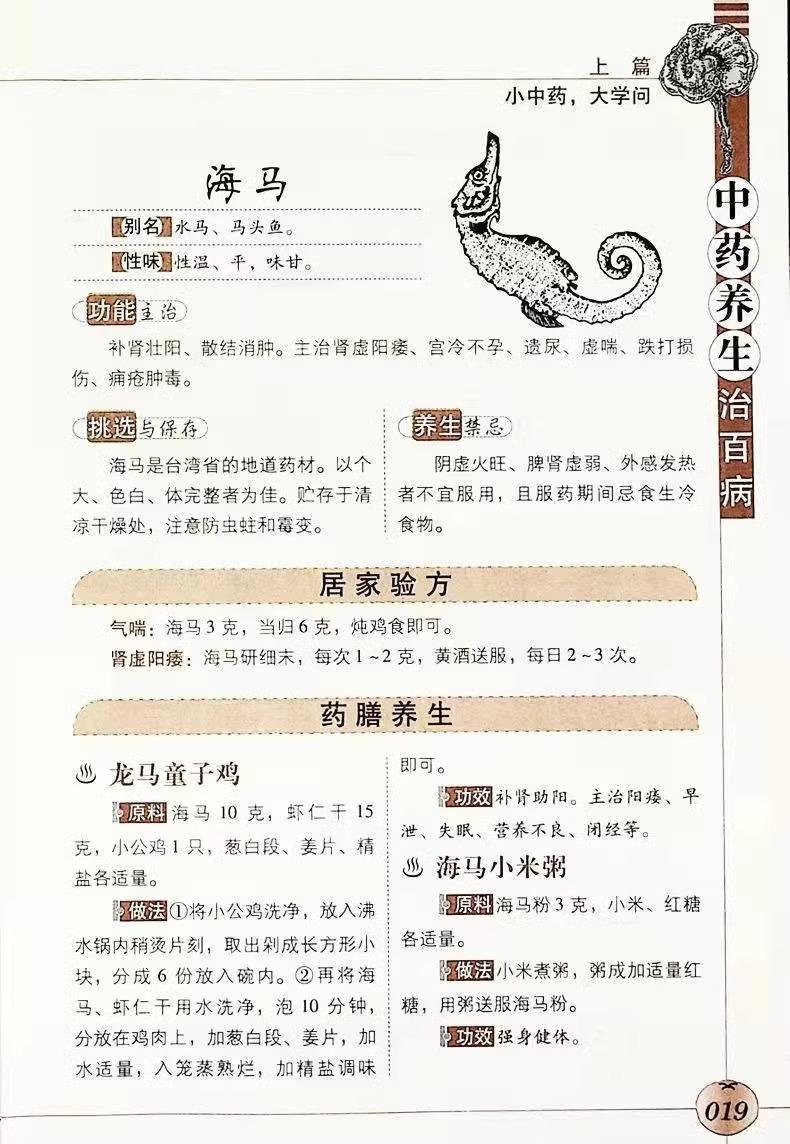 上 篇
小中药，大学问
海马
【别名】水马、马头鱼。
【性味】性温、平，味甘。
功能主治
补肾壮阳、散结消肿。主治肾虚阳痿、宫冷不孕、遗尿、虚喘、跌打损
伤、痈疮肿毒。
挑选与保存
海马是台湾省的地道药材。以个
大、色白、体完整者为佳。贮存于清
凉干燥处，注意防虫蛀和霉变。
养生禁忌
阴虚火旺、脾肾虚弱、外感发热
者不宜服用，且服药期间忌食生冷
食物。
居家验方
气喘：海马3克，当归6克，炖鸡食即可。
肾虚阳痿：海马研细末，每次1~2克，黄酒送服，每日2~3次。
药膳养生
龙马童子鸡
原料 海马 10 克，虾仁干 15
克，小公鸡1只，葱白段、姜片、精
盐各适量。
做法 ①将小公鸡洗净，放入沸
水锅内稍烫片刻，取出剁成长方形小
块，分成 6 份放入碗内。②再将海
马、虾仁干用水洗净，泡 10 分钟，
分放在鸡肉上，加葱白段、姜片，加
水适量，入笼蒸熟烂，加精盐调味
即可。
功效 补肾助阳。主治阳痿、早
泄、失眠、营养不良、闭经等。
海马小米粥
原料 海马粉3克，小米、红糖
各适量。
做法 小米煮粥，粥成加适量红
糖，用粥送服海马粉。
功效 强身健体。
中药养生治百病
019